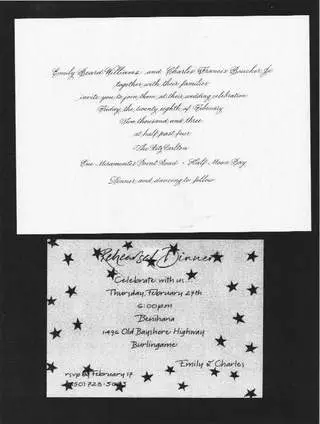 Emily Beard Williams and Charles Francis Boucher Jr
together with their families
invite you to join them at their wedding celebration
Friday, the twenty eighth of February
Two thousand and three
at half past four
The Ritz Carlton
One Miramontes Point Road • Half Moon Bay
Dinner and dancing to follow
Rehearsal Dinner
Celebrate with us...
Thursday, February 27th
6:00 pm
Benihana
1496 Old Bayshore Highway
Burlingame
Emily & Charles
rsvp by February 17